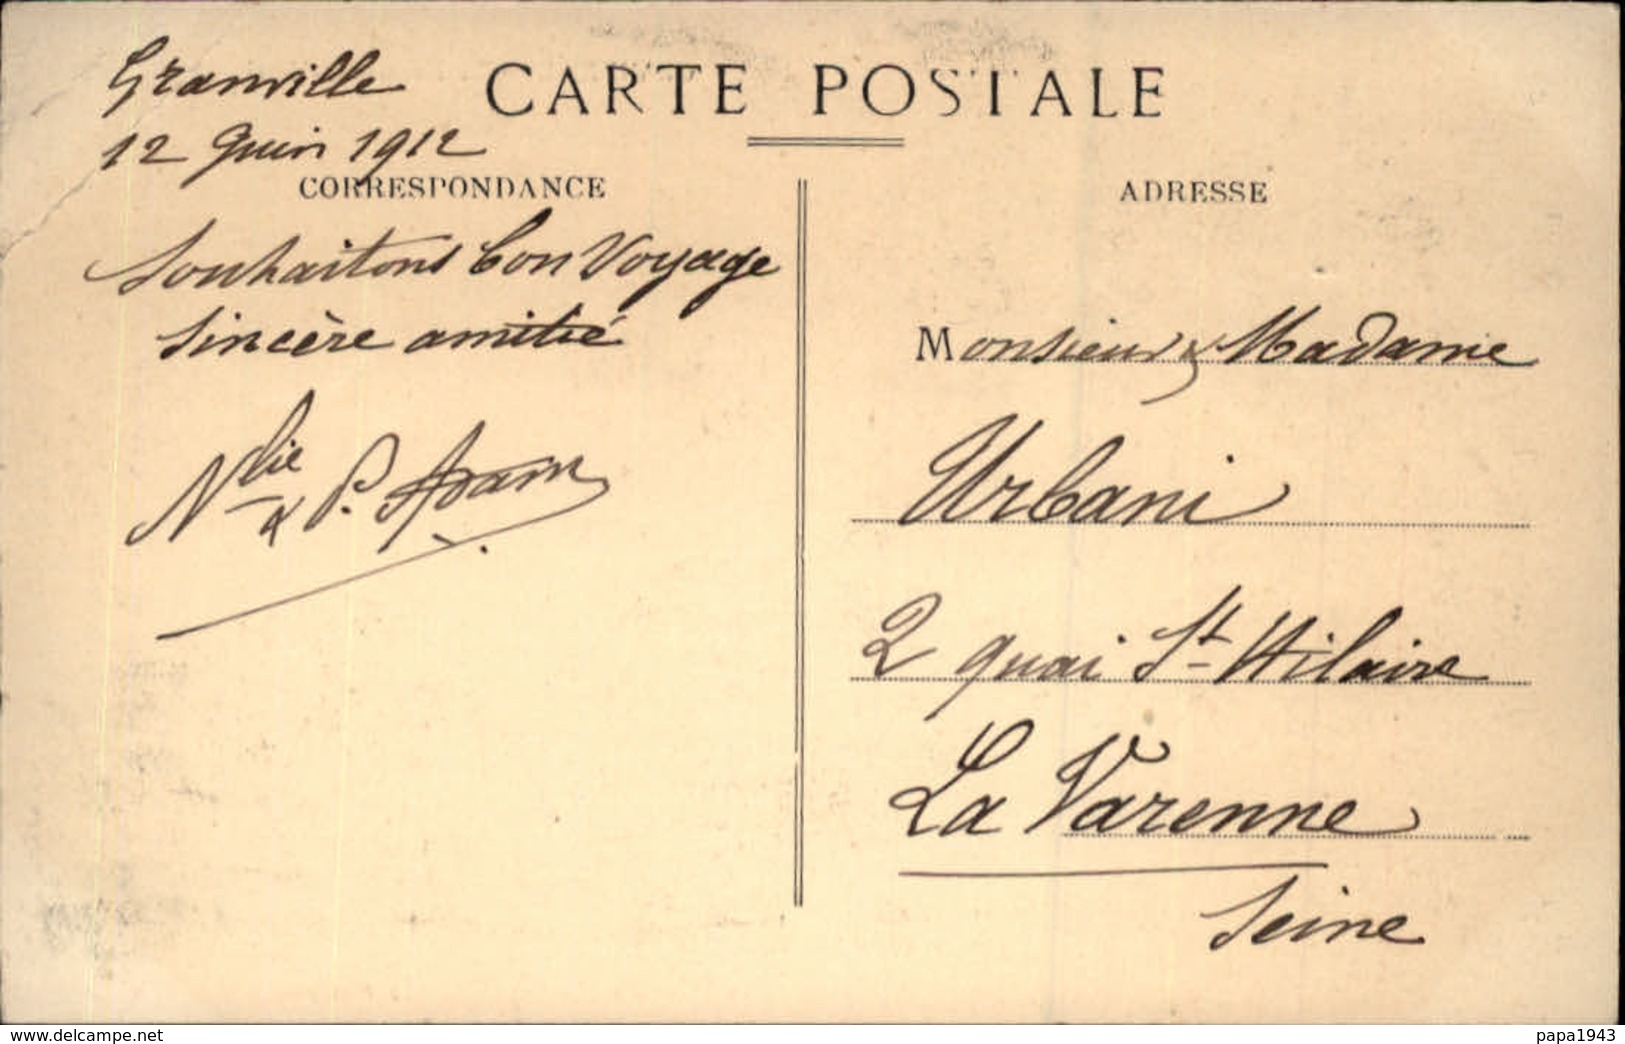 Granville
12 Juin 1912
CARTE POSTALE
CORRESPONDANCE
Souhaitons bon Voyage
Sincère amitié
Nlie & P. Adam
ADRESSE
Monsieur & Madame
Urbani
2 quai St Hilaire
La Varenne
Seine
www.delcampe.net
papa1943